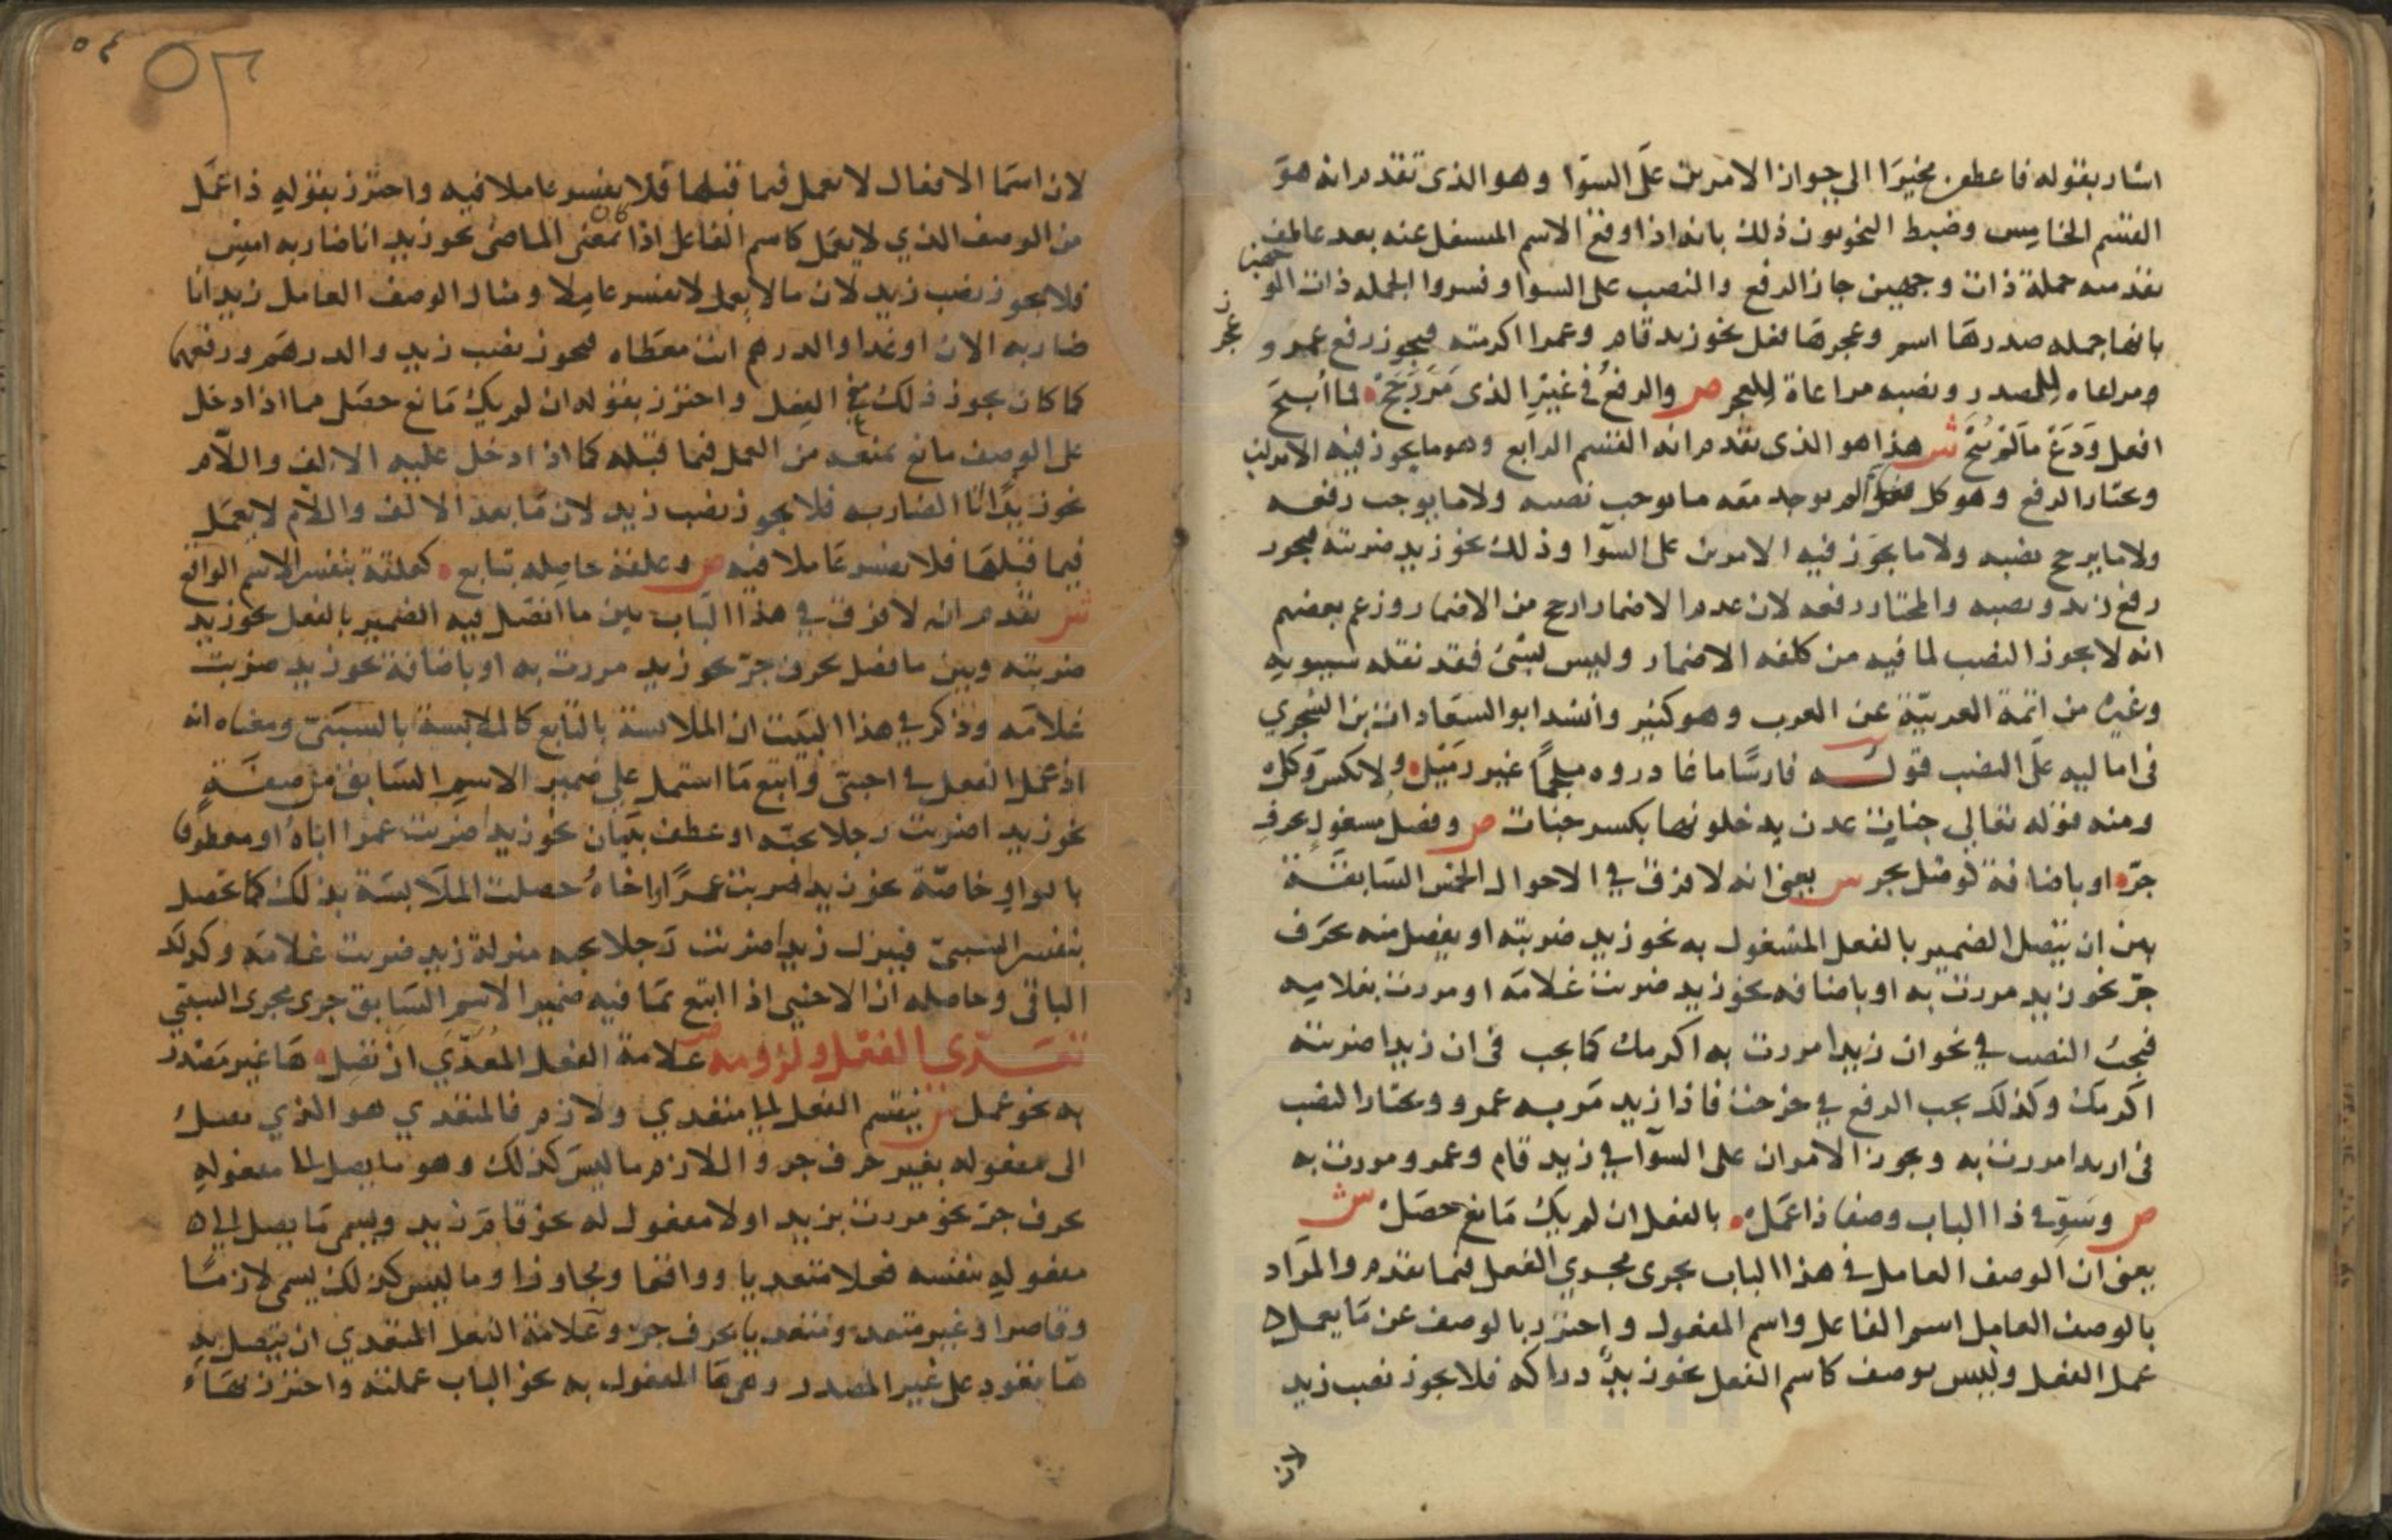 اشار بقوله فاعطفن مخيرا الى جواز الامرين على السوا وهو الذى تقدم انه هو
القسم الخامس وضبط النحويون ذلك بانه اذا وقع الاسم المشتغل عنه بعد عاطف
تقدمته جملة ذات وجهين جاز الرفع والنصب على السوا وفسروا الجملة ذات الوجهين
بانها جملة صدرها اسم وعجزها فعل نحو زيد قام وعمرا اكرمته فيجوز رفع عمرو
ومراعاه للصدر ونصبه مراعاة للعجز ص والرفع في غير الذى مر رجح فما ابيح
افعل ودع ما لم يبح ش هذا هو الذى تقدم انه القسم الرابع وهو ما يجوز فيه الامرين
ويختار الرفع وهو كل لم يوجد معه ما يوجب نصبه ولا ما يوجب رفعه
ولا ما يرجح نصبه ولا ما يجوز فيه الامرين على السوا وذلك نحو زيد ضربته فيجوز
رفع زيد ونصبه والمختار رفعه لان عدم الاضمار ارجح من الاضمار وزعم بعضهم
انه لا يجوز النصب لما فيه من كلفه الاضمار وليس بشئ فقد نقله سيبويه
وغيره من ائمة العربية عن العرب وهو كثير وانشد ابو السعادات بن الشجري
فى اماليه على النصب قوله فارسًا ما غادروه ملحمًا غير زميل ولا نكس وكل
ومنه قوله تعالى جنات عدن يدخلونها بكسر جنات ص وفصل مشغول بحرف
جر او باضافة كوصل يجر ش يعنى انه لا فرق في الاحوال الخمس السابقة
بين ان يتصل الضمير بالفعل المشغول به نحو زيد ضربته او يفصل منه بحرف
جر نحو زيد مررت به او باضافه نحو زيد ضربت غلامه او مررت بغلامه
فيجب النصب في نحو ان زيدا مررت به اكرمك كما يجب فى ان زيدا ضربته
اكرمك وكذلك يجب الرفع في خرجت فاذا زيد مر به عمرو ويختار النصب
فى ازيدا مررت به ويجوز الامران على السوا في زيد قام وعمرو مررت به
ص وسو في ذا الباب وصفا ذا عمل بالفعل ان لم يك مانع حصل ش
يعنى ان الوصف العامل فى هذا الباب يجرى مجري الفعل فيما تقدم والمراد
بالوصف العامل اسم الفاعل واسم المفعول واحترز بالوصف عن ما يعمل
عمل الفعل وليس بوصف كاسم الفعل نحو زيد دراكه فلا يجوز نصب زيد
لان
٥٤
٥٣
لان اسما الافعال لا تعمل فيما قبلها فلا يفسر عاملا فيه واحترز بقوله ذا عمل
من الوصف الذي لا يعمل كاسم الفاعل اذا كان بمعنى الماضى نحو زيد انا ضاربه امس
فلا يجوز نصب زيد لان ما لا يعمل لا يفسر عاملا ومثال الوصف العامل زيد انا
ضاربه الان او غدا والدرهم انت معطاه فيجوز نصب زيد والدرهم ورفعهما
كما كان يجوز ذلك مع الفعل واحترز بقوله ان لم يك مانع حصل مما اذا دخل
على الوصف مانع يمنعه من العمل فيما قبله كما اذا دخل عليه الالف واللام
نحو زيد انا الضاربه فلا يجوز نصب زيد لان ما بعد الالف واللام لا يعمل
فيما قبلها فلا يفسر عاملا فيه ص وعلقة حاصله بتابع كعلقة بنفس الاسم الواقع
ش تقدم انه لا فرق في هذا الباب بين ما اتصل فيه الضمير بالفعل نحو زيد
ضربته وبين ما فصل بحرف جر نحو زيد مررت به او باضافة نحو زيد ضربت
غلامه وذكر في هذا البيت ان الملابسة بالتابع كالملابسة بالسببى ومعناه انه
اذ عمل الفعل في اجنبى واتبع ما اشتمل على ضمير الاسم السابق من صفة
نحو زيد اضربت رجلا يحبه او عطف بيان نحو زيدا ضربت عمرا اباه او معطوف
بالواو خاصة نحو زيدا ضربت عمرًا واخاه حصلت الملابسة بذلك كما تحصل
بنفس السببى فينزل زيدا ضربت رجلا يحبه منزلة زيد ضربت غلامه وكذلك
الباقى وحاصله ان الاجنبى اذا اتبع بما فيه ضمير الاسم السابق جرى مجرى السببي
تعدي الفعل ولزومه ص علامة الفعل المعدى ان تصل ها غير مصدر
به نحو عمل ش ينقسم الفعل الى متعدي ولازم فالمتعدي هو الذي يصل
الى مفعوله بغير حرف جر واللازم ما ليس كذلك وهو ما يصل الى مفعوله
بحرف جر نحو مررت بزيد او لا مفعول له نحو قام زيد ويسمى ما يصل الى
مفعوله بنفسه فعلا متعديا وواقعا ومجاوزا وما ليس كذلك يسمى لازمًا
وقاصرا وغير متعد ومتعديا بحرف جر وعلامة الفعل المتعدي ان يتصل به
ها تعود على غير المصدر وهى ها المفعول به نحو الباب عملته واحترز بها